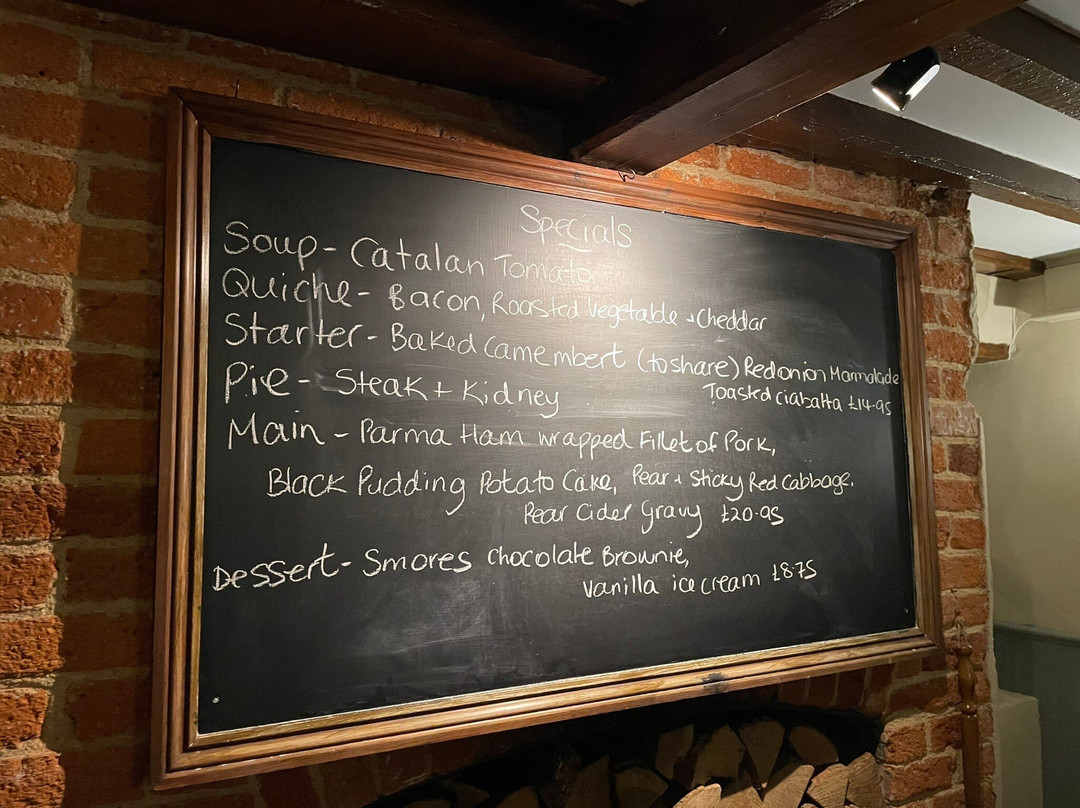 Specials
Soup - Catalan Tomato
Quiche - Bacon, Roasted Vegetable + Cheddar
Starter - Baked Camembert (to share) Red onion Marmalade
Toasted ciabatta £14.95
Pie - Steak + Kidney
Main - Parma Ham wrapped Fillet of Pork,
Black Pudding Potato Cake, Pear + Sticky Red Cabbage,
Pear Cider Gravy £20.95
Dessert - Smores Chocolate Brownie,
Vanilla ice cream £8.75